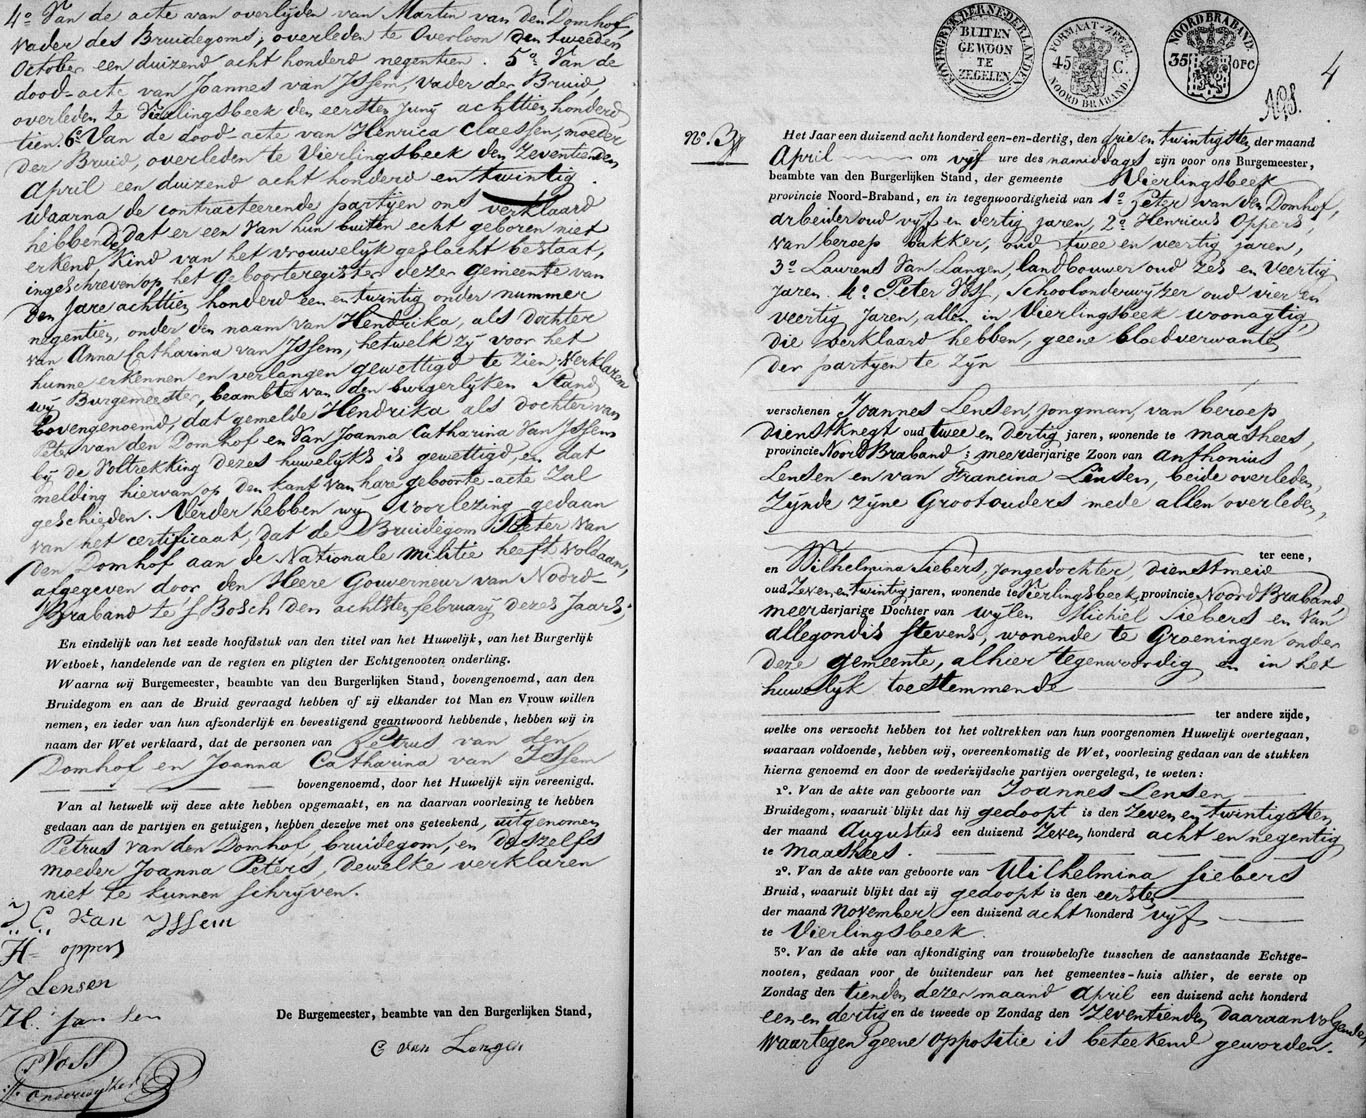 4º Van de acte van overlijden van Martin van den Domhof,
vader des Bruidegoms, overleden te Overloon den tweeden
October een duizend acht honderd negentien. 5º Van de
dood-acte van Joannes van Issem, vader der Bruid,
overleden te Vierlingsbeek den eersten Juny achttien honderd
tien. 6º Van de dood-acte van Henrica Claessen, moeder
der Bruid, overleden te Vierlingsbeek den Zeventienden
April een duizend acht honderd en twintig.
Waarna de contracteerende partijen ons verklaard
hebbende dat er een van hun buiten echt geboren niet
erkend, Kind van het vrouwelyk geslacht bestaat,
ingeschreven op het Geboorteregister dezer gemeente van
den jare achttien honderd een en twintig onder nummer
negentien, onder den naam van Hendrika, als dochter
van Anna Catharina van Issem, hetwelk zy voor het
hunne erkennen en verlangen gewettigd te zien; Verklaren
wy Burgemeester, beambte van den burgerlyken Stand
bovengenoemd, dat gemelde Hendrika als dochter van
Peter van den Domhof en van Joanna Catharina van Issem
by de Voltrekking dezes huwelyks is gewettigd, en dat
melding hiervan op den kant van hare geboorte-acte Zal
geschieden. Verder hebben wy voorlezing gedaan
van het certificaat, dat de Bruidegom Peter van
den Domhof aan de Nationale militie heeft voldaan,
afgegeven door den Heere Gouverneur van Noord-
Braband te s'Bosch den achtsten february dezes Jaars.
En eindelijk van het zesde hoofdstuk van den titel van het Huwelijk, van het Burgerlijk
Wetboek, handelende van de regten en pligten der Echtgenooten onderling.
Waarna wij Burgemeester, beambte van den Burgerlijken Stand, bovengenoemd, aan den
Bruidegom en aan de Bruid gevraagd hebben of zij elkander tot Man en Vrouw willen
nemen, en ieder van hun afzonderlijk en bevestigend geantwoord hebbende, hebben wij in
naam der Wet verklaard, dat de personen van Petrus van den
Domhof en Joanna Catharina van Issem
bovengenoemd, door het Huwelijk zijn vereenigd.
Van al hetwelk wij deze akte hebben opgemaakt, en na daarvan voorlezing te hebben
gedaan aan de partijen en getuigen, hebben dezelve met ons geteekend, uitgenomen
Petrus van den Domhof bruidegom, en deszelfs
moeder Joanna Peters, dewelke verklaren
niet te kunnen schryven.
J. C. van Issem
H oppers
J Lensen
H. Janssen
P Voss
Onderwyzer
De Burgemeester, beambte van den Burgerlijken Stand,
C van Langen
KONINGRYK DER NEDERLANDEN
BUITEN
GEWOON
TE
ZEGELEN
FORMAAT-ZEGEL
45 C
NOORD BRABAND
NOORD BRABAND
35 OPC
4
Nº. 3
Het Jaar een duizend acht honderd een-en-dertig, den drie en twintigsten der maand
April om vyf ure des namiddags, zijn voor ons Burgemeester,
beambte van den Burgerlijken Stand, der gemeente Vierlingsbeek
provincie Noord-Braband, en in tegenwoordigheid van 1º Peter van den Domhof,
arbeider oud vyf en dertig jaren, 2º Henricus Oppers,
van beroep bakker, oud twee en veertig jaren,
3º Laurens van Langen, landbouwer oud zes en veertig
Jaren. 4º Peter Voss, Schoolonderwyzer oud vier en
veertig Jaren, allen in Vierlingsbeek woonagtig,
die verklaard hebben, geene bloedverwanten
der partyen te zyn
verschenen Joannes Lensen, jongman, van beroep
dienstknegt oud twee en dertig jaren, wonende te maashees,
provincie Noord Braband; meerderjarige Zoon van Anthonius
Lensen en van Francina Lensen, beide overleden,
Zynde zyne Grootouders mede allen overleden,
ter eene,
en Wilhelmina Siebers, Jongedochter, dienstmeid
oud Zeven en twintig jaren, wonende te Vierlingsbeek, provincie Noord Braband,
meerderjarige Dochter van wylen Michiel Siebers en van
allegondis Stevens, wonende te Groeningen onder
deze gemeente, alhier tegenwoordig en in het
huwelyk toestemmende
ter andere zijde,
welke ons verzocht hebben tot het voltrekken van hun voorgenomen Huwelijk overtegaan,
waaraan voldoende, hebben wij, overeenkomstig de Wet, voorlezing gedaan van de stukken
hierna genoemd en door de wederzijdsche partijen overgelegd, te weten:
1º. Van de akte van geboorte van Joannes Lensen
Bruidegom, waaruit blijkt dat hij gedoopt is den Zeven en twintigsten
der maand Augustus een duizend Zeven honderd acht en negentig
te Maashees.
2º. Van de akte van geboorte van Wilhelmina Siebers
Bruid, waaruit blijkt dat zij gedoopt is den eersten
der maand November een duizend acht honderd vyf
te Vierlingsbeek.
3º. Van de akte van afkondiging van trouwbelofte tusschen de aanstaande Echtge-
nooten, gedaan voor de buitendeur van het gemeentes-huis alhier, de eerste op
Zondag den tienden dezer maand April een duizend acht honderd
een en dertig en de tweede op Zondag den Zeventienden daaraanvolgende,
waartegen geene oppositie is beteekend geworden.